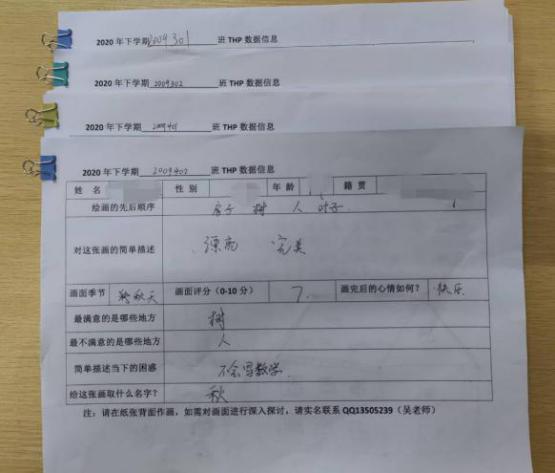 2020年下学期2009301班THP数据信息
2020年下学期2009302班THP数据信息
2020年下学期2009401班THP数据信息
2020年下学期2009402班THP数据信息
姓名 性别 年龄 籍贯
绘画的先后顺序 房子 树 人 叶子
对这张画的简单描述 漂亮 完美
画面季节 秋天 画面评分(0-10分) 7. 画完后的心情如何? 快乐
最满意的是哪些地方 树
最不满意的是哪些地方 人
简单描述当下的困惑 不会写数学.
给这张画取什么名字? 秋
注:请在纸张背面作画,如需对画面进行深入探讨,请实名联系QQ13505239(吴老师)